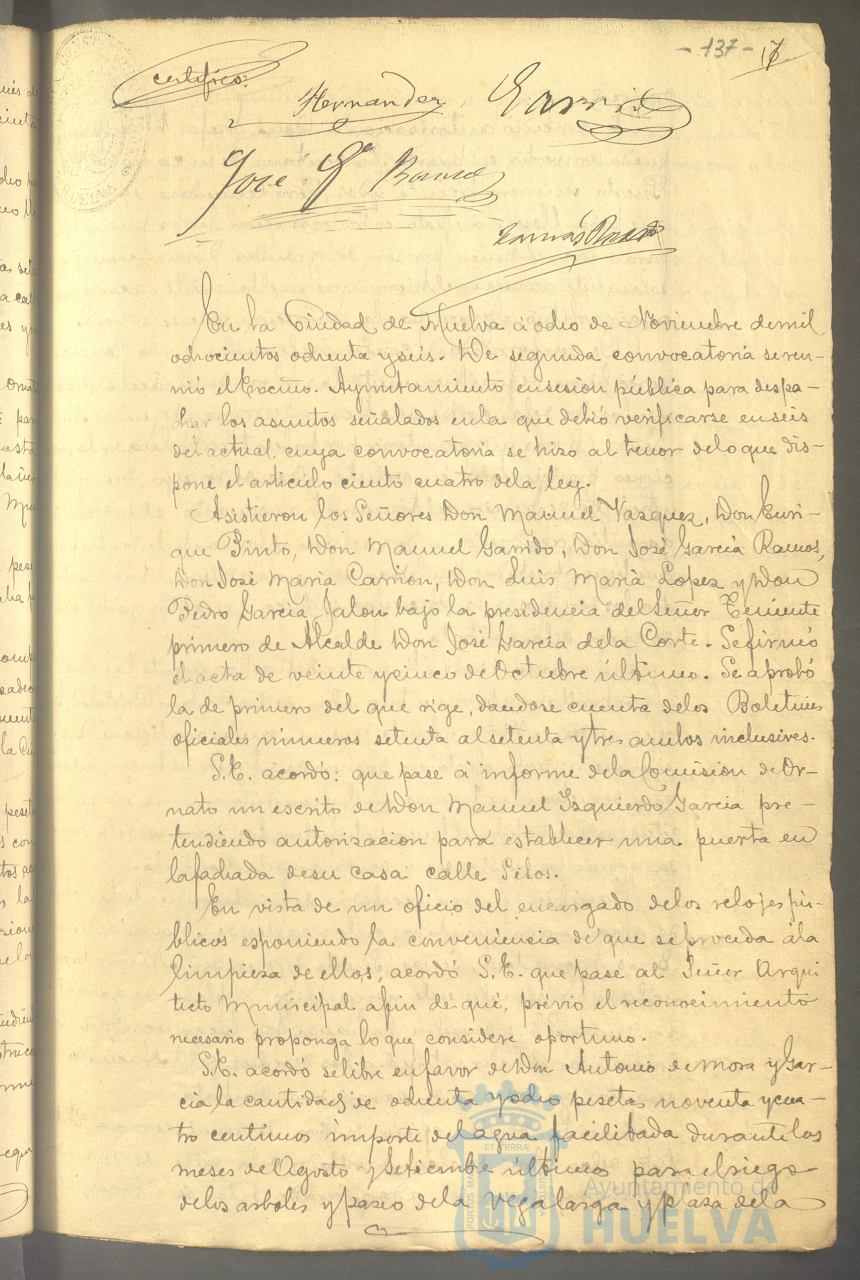 - 137 - 17
certifico.
Hernandez
José Gª Ramos
En la Ciudad de Huelva á ocho de Noviembre de mil
ochocientos ochenta y seis. De segunda convocatoria se reu-
nió el Excmo. Ayuntamiento en sesion pública para despa-
char los asuntos señalados en la que debió verificarse en seis
del actual, cuya convocatoria se hizo al tenor de lo que dis-
pone el articulo ciento cuatro de la ley.
Asistieron los Señores Don Manuel Vazquez, Don Enri-
que Pinto, Don Manuel Garrido, Don José Garcia Ramos,
Don José Maria Carrion, Don Luis Maria Lopez y Don
Pedro Garcia Jalon bajo la presidencia del Señor Teniente
primero de Alcalde Don José Garcia de la Corte. Se firmó
el acta de veinte y cinco de Octubre último. Se aprobó
la de primero del que rige, dandose cuenta de los Boletines
oficiales números setenta al setenta y tres ambos inclusives.
S.E. acordó: que pase á informe de la Comision de Or-
nato un escrito de Don Manuel Izquierdo Garcia pre-
tendiendo autorizacion para establecer una puerta en
la fachada de su casa calle Silos.
En vista de un oficio del encargado de los relojes pú-
blicos esponiendo la conveniencia de que se proceda á la
limpieza de ellos, acordó S.E. que pase al Señor Arqui
tecto Municipal a fin de que, prévio el reconocimiento
necesario proponga lo que considere oportuno.
S.E. acordó se libre en favor de Don Antonio de Mora y Gar-
cia la cantidad de ochenta y ocho pesetas noventa y cua-
tro centimos importe del agua facilitada durante los
meses de Agosto y Setiembre últimos para el riego
de los arboles y paseo de la vega larga y plaza de la
Ayuntamiento de
HUELVA